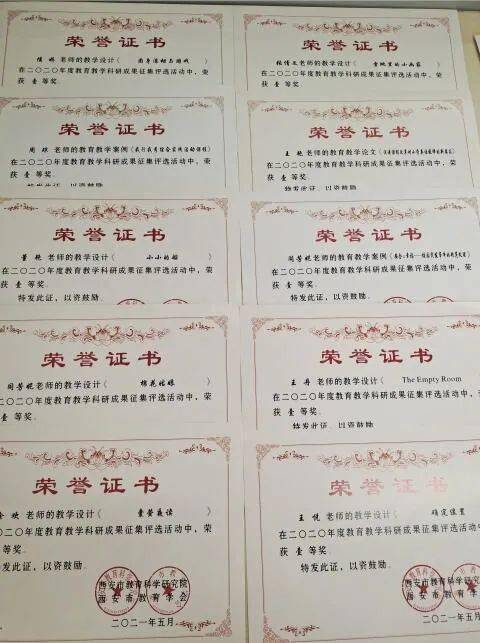 荣誉证书
老师的教学设计（ 游戏 ）
在二〇二〇年度教育教学科研成果征集评选活动中，荣
获 壹 等奖
荣誉证书
老师的教学设计（ 雪地里的小画家
在二〇二〇年度教育教学科研成果征集评选活动中，荣
获 壹 等奖
荣誉证书
老师的教育教学案例（ ）
在二〇二〇年度教育教学科研成果征集评选活动中，荣
获 壹 等奖.
荣誉证书
王 艳 老师的教育教学论文（ ）
在二〇二〇年度教育教学科研成果征集评选活动中，荣
获 壹 等奖.
特发此证，以资鼓励.
荣誉证书
董 艳 老师的教学设计（ 小小的船 ）
在二〇二〇年度教育教学科研成果征集评选活动中，荣
获 壹 等奖.
特发此证，以资鼓励.
荣誉证书
周芳妮老师的教育教学案例（ ）
在二〇二〇年度教育教学科研成果征集评选活动中，荣
获 壹 等奖.
特发此证，以资鼓励.
荣誉证书
周芳妮老师的教学设计（ 棉花姑娘 ）
在二〇二〇年度教育教学科研成果征集评选活动中，荣
获 壹 等奖.
荣誉证书
王 丹 老师的教学设计（ The Empty Room ）
在二〇二〇年度教育教学科研成果征集评选活动中，
获 壹 等奖.
特发此证，以资鼓励
荣誉证书
欢 老师的教学设计（ 囊萤夜读 ）
二〇二〇年度教育教学科研成果征集评选活动中，荣
壹 等奖.
特发此证，以资鼓励.
西安市教育科学研究院
西安市教育学会
二〇二一年五月
荣誉证书
王 悦 老师的教学设计（ 确定位置 ）
在二〇二〇年度教育教学科研成果征集评选活动中，
获 壹 等奖.
特发此证，以资鼓励.
西安市教育科学研究院
西安市教育学会
二〇二一年五月